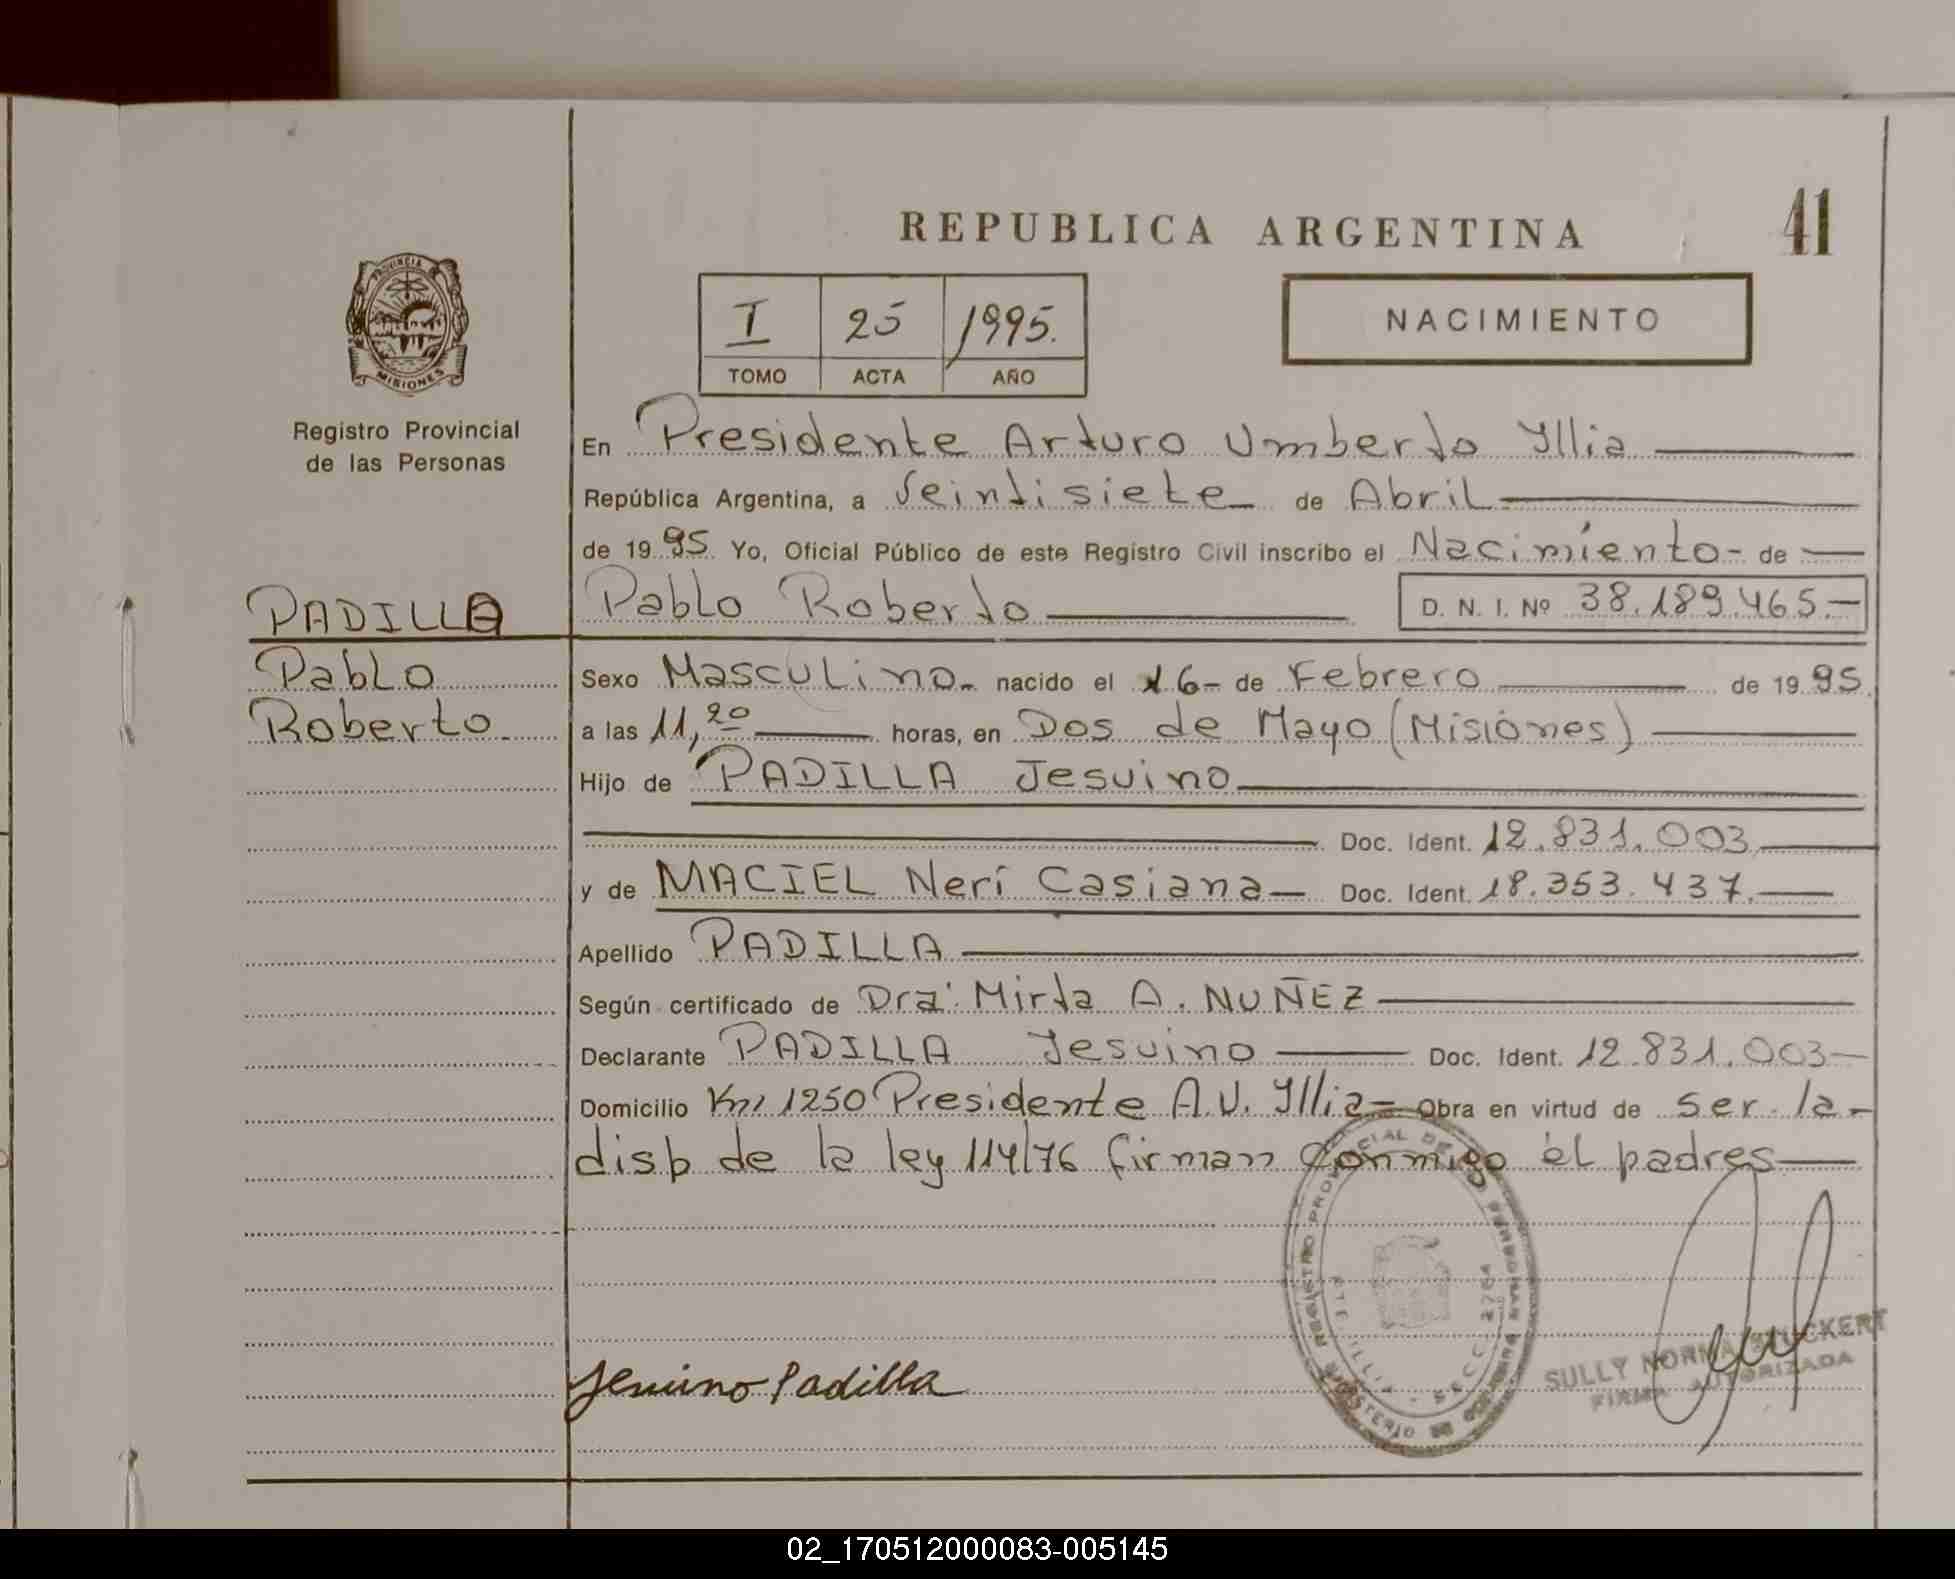 REPUBLICA ARGENTINA
41
PROVINCIA
MISIONES
Registro Provincial
de las Personas
I 25 1995.
TOMO ACTA AÑO
NACIMIENTO
En Presidente Arturo Umberto Yllia
República Argentina, a Veintisiete de Abril
de 1995 Yo, Oficial Público de este Registro Civil inscribo el Nacimiento - de
PADILLA
Pablo Roberto D. N. I. Nº 38.189.465.-
Pablo
Roberto
Sexo Masculino - nacido el 16 - de Febrero de 1995
a las 11,20 horas, en Dos de Mayo (Misiones)
Hijo de PADILLA Jesuino
Doc. Ident. 12.831.003
y de MACIEL Neri Casiana Doc. Ident. 18.353.437.
Apellido PADILLA
Según certificado de Dra. Mirta A. NUÑEZ
Declarante PADILLA Jesuino Doc. Ident. 12.831.003
Domicilio Km 1250 Presidente A.U. Yllia - Obra en virtud de ser la -
disp de la ley 114/76 firman conmigo el padres
REGISTRO PROVINCIAL DE LAS PERSONAS
PTE ILLIA - SECC 2764
MINISTERIO DE
Jesuino Padilla
SULLY NORMA STUCKERT
FIRMA AUTORIZADA
02_170512000083-005145